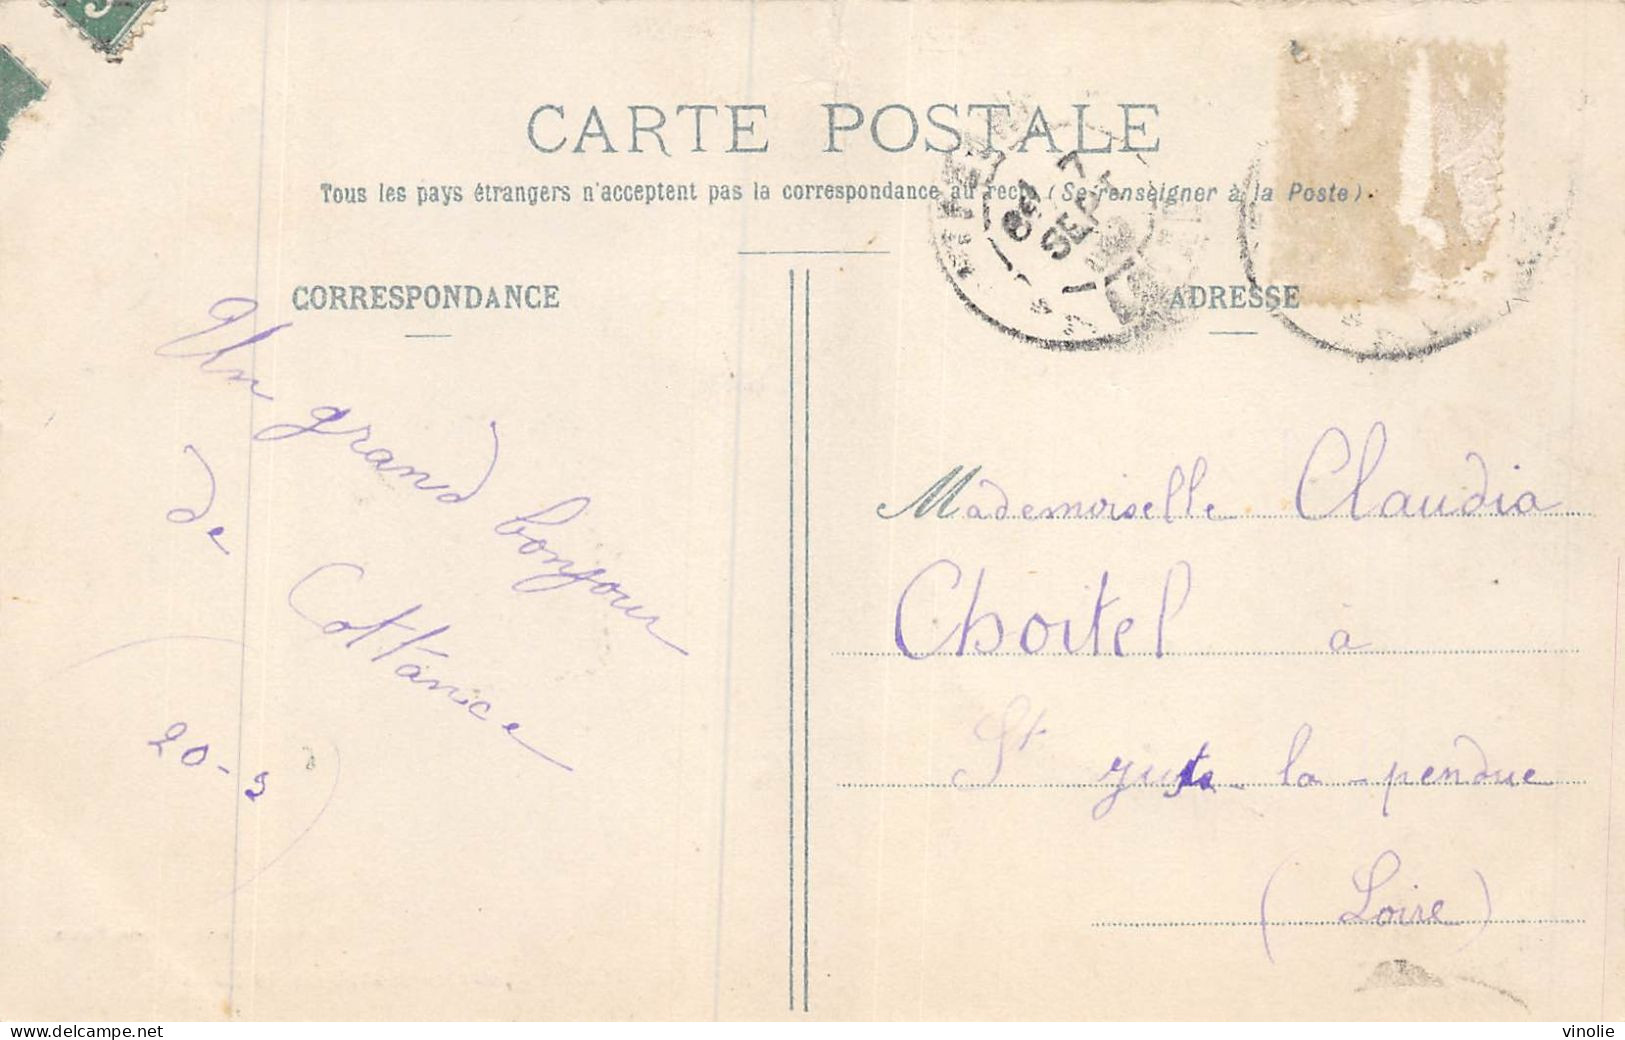 CARTE POSTALE
Tous les pays étrangers n'acceptent pas la correspondance au recto (Se renseigner à la Poste).
CORRESPONDANCE
ADRESSE
Un grand bonjour
de Cottance
20-9
Mademoiselle Claudia
Choitel à
St just-la-pendue
(Loire)
7
SEPT
09
vinolie - www.delcampe.net